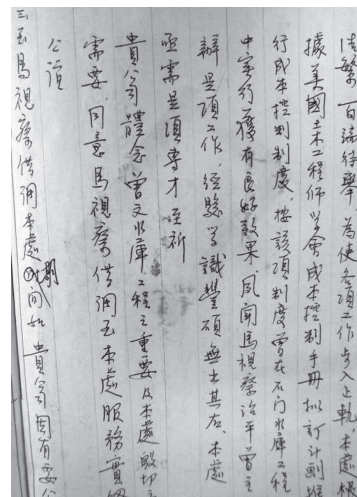 浩繁百論待舉為使各項工作步入正軌本處
據美國土木工程師學會成本控制手冊擬訂計劃推
行成本控制制度,按該項制度曾在石门水庫工程
中實行獲有良好效果,風聞馬視察治平曾主
辦是項工作,經驗學識豐碩無出其右,本處
亟需是項專才逕祈
貴公司體念曾文水庫工程之重要及本處殷切之
需要,同意馬視察借調至本處服務實
公誼
三至馬視察借調本處期間如貴公司因有要公